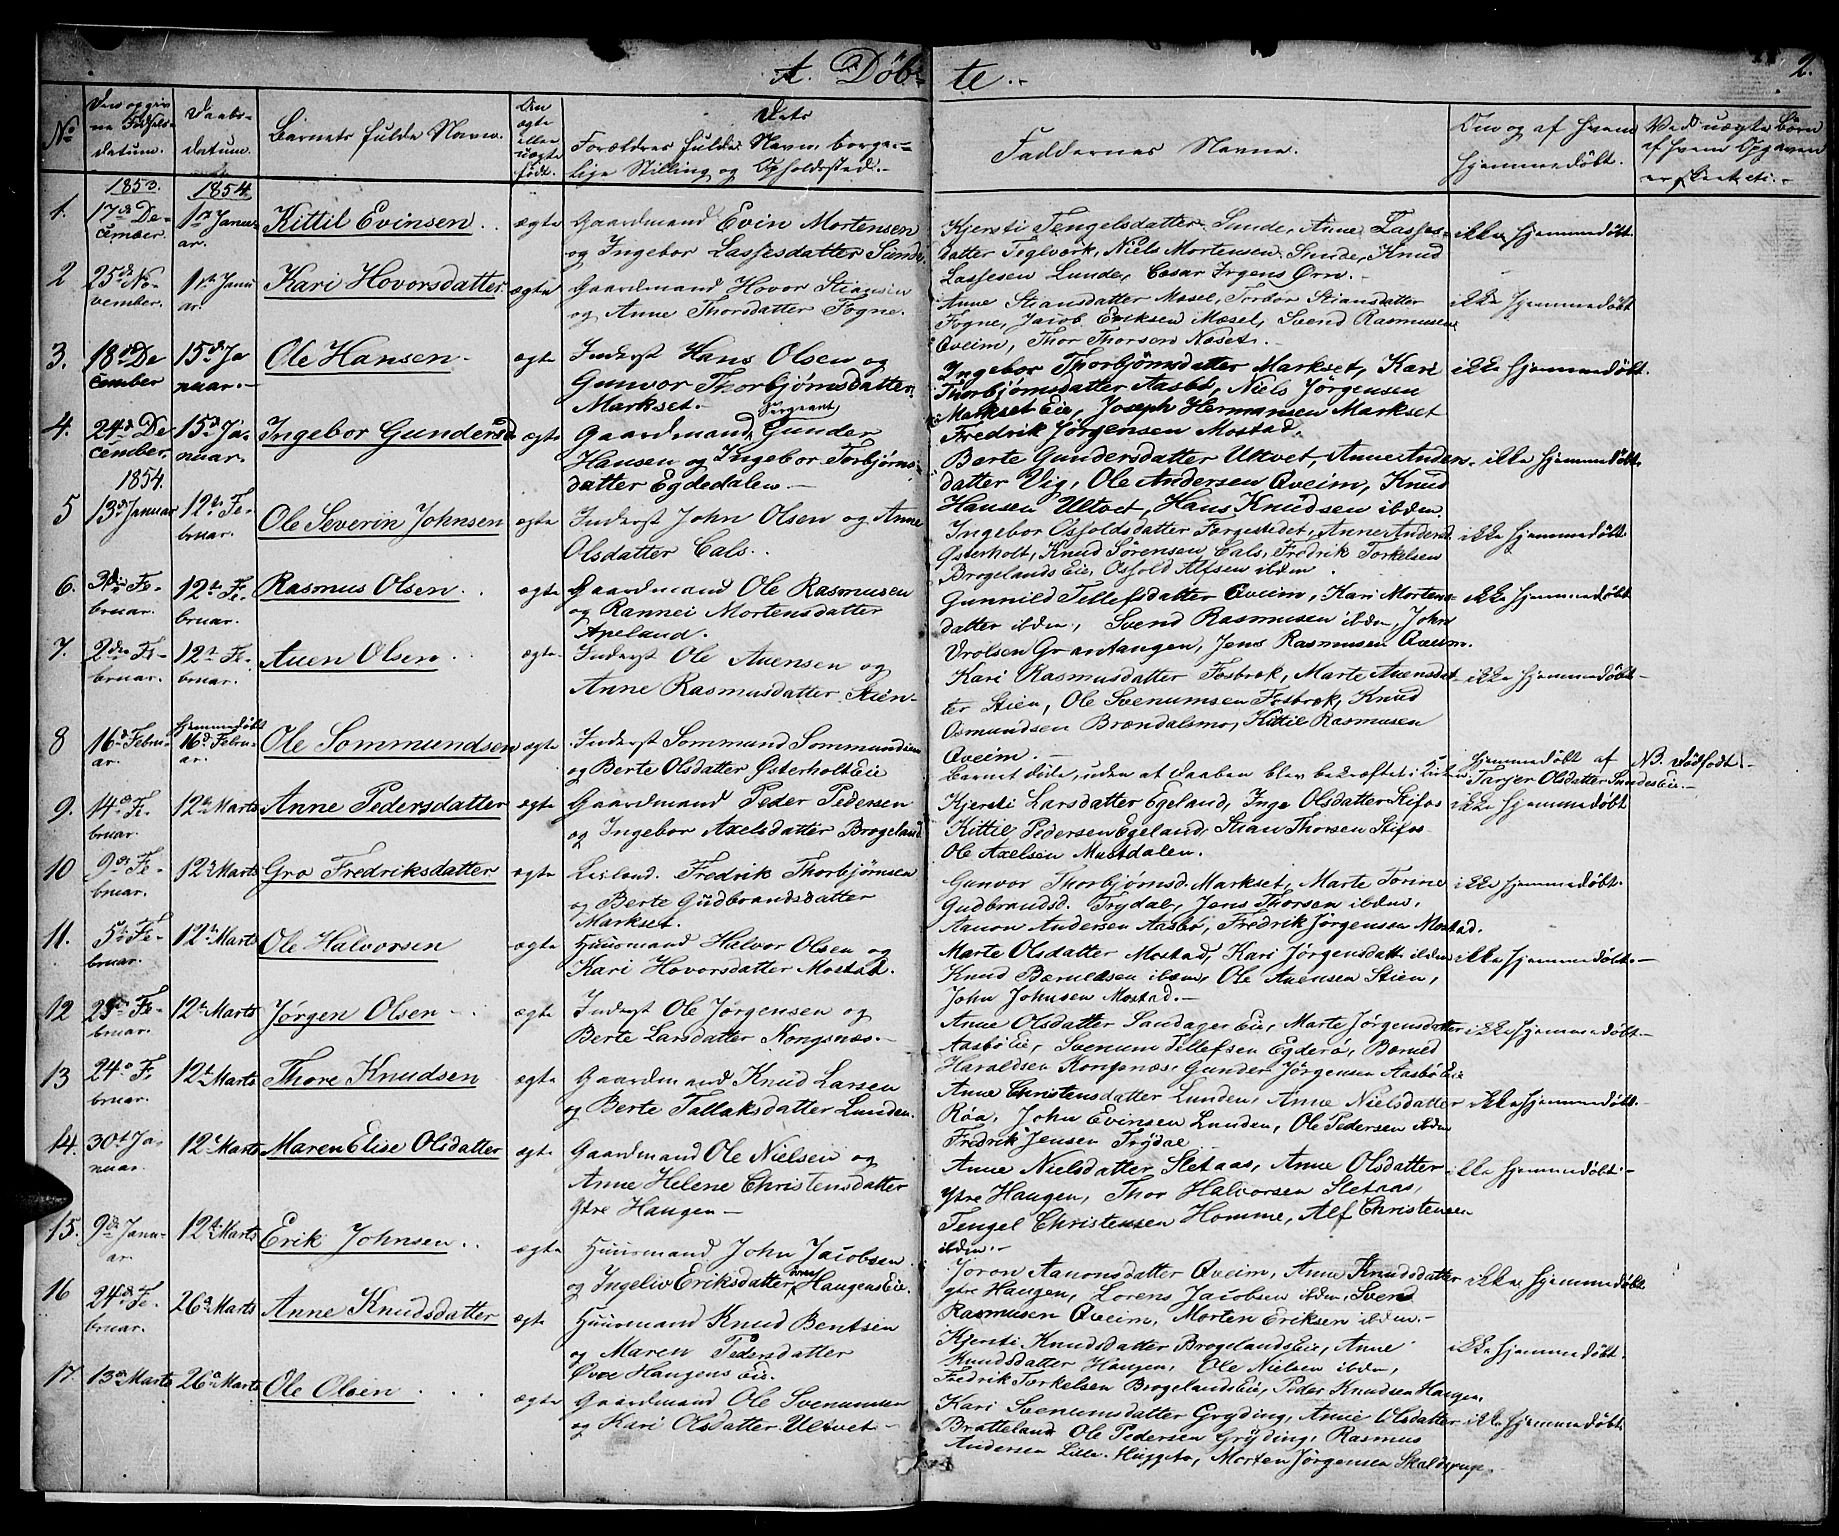 A. Døbte.
2.
No
Den opgivne Fødselsdatum.
Daabsdatum.
Barnets fulde Navn.
Om ægte eller uægte født.
Dets Forældres fulde Navn, borgerlige Stilling og Opholdssted.
Faddernes Navne.
Om og af hvem hjemmedøbt.
Ved uægte Børn af hvem Opgaven er skeet etc.
1853. 1854.
1. 17de December. 1ste Januar. Kittil Evinsen ægte Gaardmand Evin Mortensen
og Ingebor Lassesdatter Sunde
Kjersti Tengelsdatter Sunde, Anne Lasses-
datter Teglverk, Niels Mortensen Sunde, Knud
Lassesen Lunde, Cæsar Irgens Ørn.
ikke hjemmedøbt.
2 25de November. 1ste Januar. Kari Hovorsdatter ægte Gaardmand Hovor Stiansen
og Anne Thorsdatter Fogne.
Anne Stiansdatter Mæsel, Torbør Stiansdatter
Fogne, Jacob Eriksen Mæsel, Svend Rasmusen
Qveim, Thor Thorsen Næset.
ikke hjemmedøbt
3. 18de December 15de Januar. Ole Hansen ægte Inderst Hans Olsen og
Gunvor Thorbjørnsdatter
Markset.
Ingebor Thorbjørnsdatter Markset, Kari
Thorbjørnsdatter Aasbø, Niels Jörgensen
Markset Eie, Joseph Hermansen Markset
Fredrik Jørgensen Mostad.
ikke hjemmedøbt.
4. 24de December. 15de Januar. Ingebor Gundersd. ægte Gaardmand, Sergeant Gunder
Hansen og Ingebor Torbjørns-
datter Egdedalen
Berte Gundersdatter Ultvet, Anne Anders-
datter Vig, Ole Andersen Qveim, Knud
Hansen Ultvet, Hans Knudsen ibdm.
ikke hjemmedøbt
1854.
5 13de Januar 12te Februar. Ole Severin Johnsen ægte Inderst John Olsen og Anne
Olsdatter Cals.
Ingebor Osfoldsdatter Færgestedet, Anne Andersd.
Østerholt, Knud Sørensen Cals, Fredrik Torkelsen
Brogelands Eie, Osfold Alfsen ibdm.
ikke hjemmedøbt
6. 3die Februar. 12te Februar. Rasmus Olsen ægte Gaardmand Ole Rasmusen
og Rannei Mortensdatter
Apeland.
Gunnild Tellefsdatter Qveim, Kari Mortens-
datter ibdm, Svend Rasmusen ibdm, John
Vrolsen Grantangen, Jens Rasmusen Qveim.
ikke hjemmedøbt
7. 2den Februar. 12te Februar. Auen Olsen ægte Inderst Ole Auensen og
Anne Rasmusdatter Stien
Kari Rasmusdatter Fosbræk, Marte Auensdat-
ter Stien, Ole Svenumsen Fosbræk, Knud
Osmundsen Brændalsmo, Kittil Rasmusen
Qveim.
ikke hjemmedøbt
8 16de Februar. hjemmedøbt 16de Februar. Ole Sommundsen ægte Inderst Sommund Sommundsen
og Berte Olsdatter Østerholt Eie
Barnet døde, uden at Daaben blev bekræftet i Kirken
Hjemmedøbt af
Tarjer Olsdatter Sundes Eie.
NB. dødfødt.
9. 14de Februar. 12te Marts Anne Pedersdatter ægte Gaardmand Peder Pedersen
og Ingebor Axelsdatter Brogeland
Kjersti Larsdatter Egeland, Inge Olsdatter Stifos
Kittil Pedersen Egeland, Stian Thorsen Stifos
Ole Axelsen Mostdalen.
ikke hjemmedøbt
10 9de Februar. 12te Marts Gro Fredriksdatter ægte Leiland. Fredrik Thorbjørnsen
og Berte Gudbrandsdatter
Markset.
Gunvor Thorbjørnsd. Markset, Marte Torine
Gudbrandsd. Trydal, Jens Thorsen ibdm,
Aanon Andersen Aasbø, Fredrik Jørgensen Mostad.
ikke hjemmedøbt.
11. 5te Februar. 12te Marts Ole Halvorsen ægte Huusmand Halvor Olsen og
Kari Hovorsdatter Mostad.
Marte Olsdatter Mostad, Kari Jørgensdatt. ibdm
Knud Berulfsen ibdm, Ole Auensen Stien,
John Johnsen Mostad.
ikke hjemmedøbt.
12 25de Februar. 12te Marts Jørgen Olsen ægte Inderst Ole Jørgensen og
Berte Larsdatter Kongsnæs.
Anne Olsdatter Sandager Eie, Marte Jørgensdatter
Aasbø Eie, Svenum Tellefsen Egderø, Berned
Haraldsen Kongsnæs, Gunder Jørgensen Aasbø Eie
ikke hjemmedøbt.
13 24de Februar. 12te Marts Thore Knudsen ægte Gaardmand Knud Larsen
og Berte Tallaksdatter Lunden.
Anne Christensdatter Lunden, Anne Nielsdatter
Røa, John Evinsen Lunden, Ole Pedersen ibdm
Fredrik Jensen Trydal
ikke hjemmedøbt.
14. 30te Januar. 12te Marts Maren Elise Olsdatter ægte Gaardmand Ole Nielsen og
Anne Helene Christensdatter
Ytre Haugen
Anne Nielsdatter Sletaas, Anne Olsdatter
Ytre Haugen, Thor Halvorsen Sletaas,
Tengel Christensen Homme, Alf Christensen
ibdm.
ikke hjemmedøbt.
15. 9de Januar. 12te Marts Erik Johnsen ægte Huusmand John Jacobsen
og Ingeliv Eriksdatter øvre Haugens Eie.
Joron Aanonsdatter Qveim, Anne Knudsdatter
ytre Haugen, Lorens Jacobsen ibdm, Svend
Rasmusen Qveim, Morten Eriksen ibdm.
ikke hjemmedøbt
16 24de Februar. 26de Marts Anne Knudsdatter ægte Huusmand Knud Bentsen
og Maren Pedersdatter
Øvre Haugens Eie.
Kjersti Knudsdatter Brogelands Eie, Anne
Knudsdatter Haugen, Ole Nielsen ibdm,
Fredrik Torkelsen Brogelands Eie, Peder Knudsen Haugen.
ikke hjemmedøbt.
17. 13de Marts 26de Marts Ole Olsen ægte Gaardmand Ole Svenumsen
og Kari Olsdatter Ultvet
Kari Svenumsdatter Gryding, Anne Olsdatter
Bratteland, Ole Pedersen Gryding, Rasmus
Andersen Lille Hugsto, Morten Jørgensen
ikke hjemmedøbt